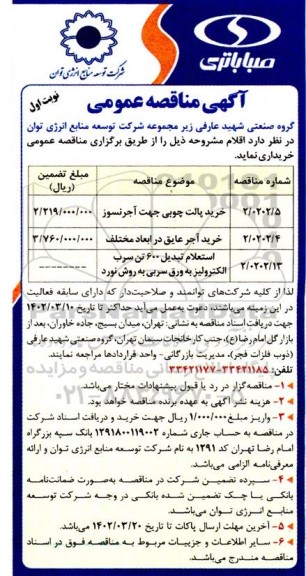 صباباتری
شرکت توسعه منابع انرژی توان
آگهی مناقصه عمومی
نوبت اول
گروه صنعتی شهید عارفی زیر مجموعه شرکت توسعه منابع انرژی توان
در نظر دارد اقلام مشروحه ذیل را از طریق برگزاری مناقصه عمومی
خریداری نماید.
شماره مناقصه موضوع مناقصه مبلغ تضمین (ریال)
۲/۰۲۰۲/۵ خرید پالت چوبی جهت آجرنسوز ۲/۲۱۹/۰۰۰/۰۰۰
۲/۰۲۰۲/۴ خرید آجر عایق در ابعاد مختلف ۳/۷۶۰/۰۰۰/۰۰۰
۲/۰۲۰۲/۱۳ استعلام تبدیل ۶۰۰ تن سرب الکترولیز به ورق سربی به روش نورد ---------
لذا از کلیه شرکت‌های توانمند و صلاحیت‌دار که دارای سابقه فعالیت
در این زمینه می‌باشند، دعوت به‌عمل می‌آید حداکثر تا تاریخ ۱۴۰۲/۰۳/۱۰
جهت دریافت اسناد مناقصه به نشانی: تهران، میدان بسیج، جاده خاوران، بعد از
بازار گل امام رضا(ع)، جنب کارخانجات سیمان تهران، گروه صنعتی شهید عارفی
(ذوب فلزات فجر)، مدیریت بازرگانی- واحد قراردادها مراجعه نمایند.
تلفن: ۳۳۴۲۱۱۸۵-۳۳۴۲۱۱۷۷
۱- مناقصه‌گزار در رد یا قبول پیشنهادات مختار می‌باشد.
۲- هزینه نشر آگهی به عهده برنده مناقصه خواهد بود.
۳- واریز مبلغ ۱/۰۰۰/۰۰۰ ریال جهت خرید و دریافت اسناد شرکت
در مناقصه به حساب جاری شماره ۱۲۹۱۸۰۰۱۱۹۰۰۲ بانک سپه بزرگراه
امام رضا تهران کد ۱۲۹۱ به نام شرکت توسعه منابع انرژی توان و ارائه
معرفی‌نامه الزامی می‌باشد.
۴- سپرده تضمین شرکت در مناقصه به‌صورت ضمانت‌نامه
بانکی یا چک تضمین شده بانکی در وجه شرکت توسعه
منابع انرژی توان می‌باشد.
۵- آخرین مهلت ارسال پاکات تا تاریخ ۱۴۰۲/۰۳/۲۰ می‌باشد.
۶- سایر اطلاعات و جزییات مربوط به مناقصه فوق در اسناد
مناقصه مندرج می‌باشد.